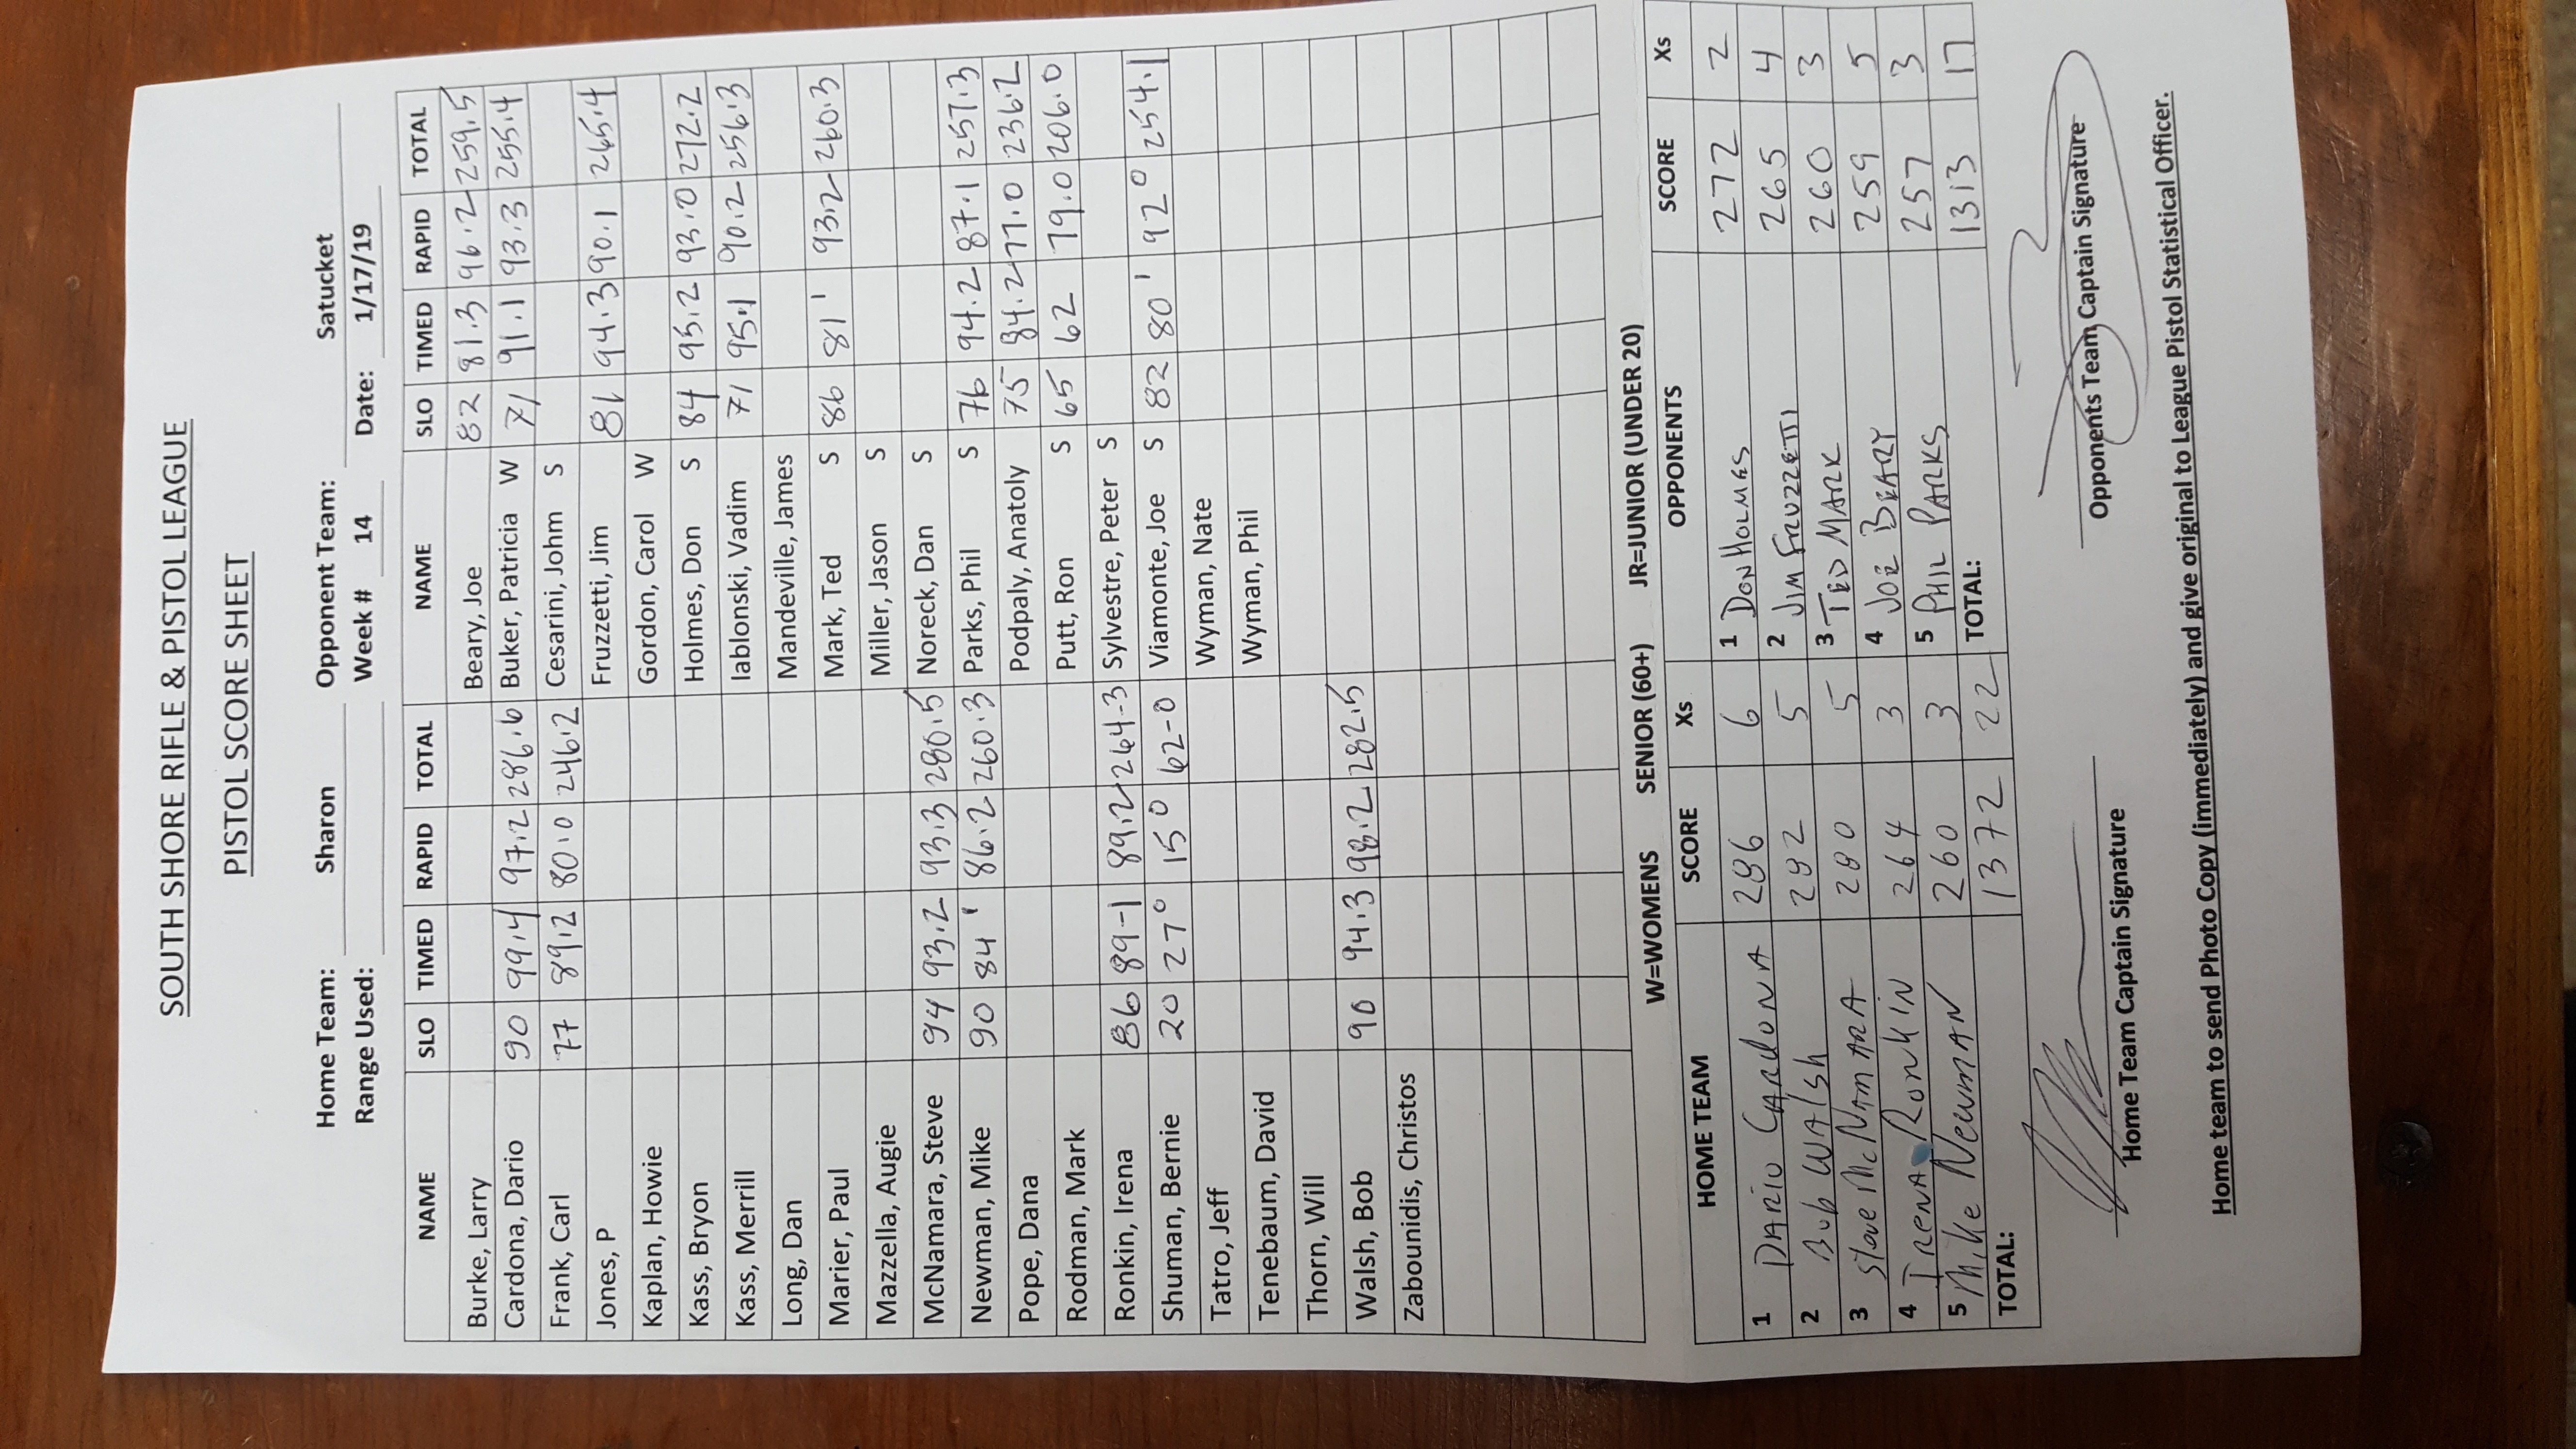 SOUTH SHORE RIFLE & PISTOL LEAGUE
PISTOL SCORE SHEET
Home Team: Sharon Opponent Team: Satucket
Range Used: Week # 14 Date: 1/17/19
NAME SLO TIMED RAPID TOTAL NAME SLO TIMED RAPID TOTAL
Burke, Larry Beary, Joe 82 81.3 96.2 259.5
Cardona, Dario 90 99.4 97.2 286.6 Buker, Patricia W 71 91.1 93.3 255.4
Frank, Carl 77 89.2 80.0 246.2 Cesarini, Johm S
Jones, P Fruzzetti, Jim 81 94.3 90.1 265.4
Kaplan, Howie Gordon, Carol W
Kass, Bryon Holmes, Don S 84 95.2 93.0 272.2
Kass, Merrill Iablonski, Vadim 71 95.1 90.2 256.3
Long, Dan Mandeville, James
Marier, Paul Mark, Ted S 86 81 1 93.2 260.3
Mazzella, Augie Miller, Jason S
McNamara, Steve 94 93.2 93.3 280.5 Noreck, Dan S
Newman, Mike 90 84 1 86.2 260.3 Parks, Phil S 76 94.2 87.1 257.3
Pope, Dana Podpaly, Anatoly 75 84.2 77.0 236.2
Rodman, Mark Putt, Ron S 65 62 79.0 206.0
Ronkin, Irena 86 89-1 89.2 264-3 Sylvestre, Peter S
Shuman, Bernie 20 27 0 15 0 62-0 Viamonte, Joe S 82 80 1 92 0 254.1
Tatro, Jeff Wyman, Nate
Tenebaum, David Wyman, Phil
Thorn, Will
Walsh, Bob 90 94.3 98.2 282.5
Zabounidis, Christos
W=WOMENS SENIOR (60+) JR=JUNIOR (UNDER 20)
HOME TEAM SCORE Xs OPPONENTS SCORE Xs
1 DARIO CARDONA 286 6 1 DON HOLMES 272 2
2 Bob WAlsh 282 5 2 JIM FRUZZETTI 265 4
3 Steve McNAMARA 280 5 3 TED MARK 260 3
4 IRENA RonKiN 264 3 4 JOE BEARY 259 5
5 Mike NewmAN 260 3 5 PHIL PARKS 257 3
TOTAL: 1372 22 TOTAL: 1313 17
Home Team Captain Signature Opponents Team Captain Signature
Home team to send Photo Copy (immediately) and give original to League Pistol Statistical Officer.